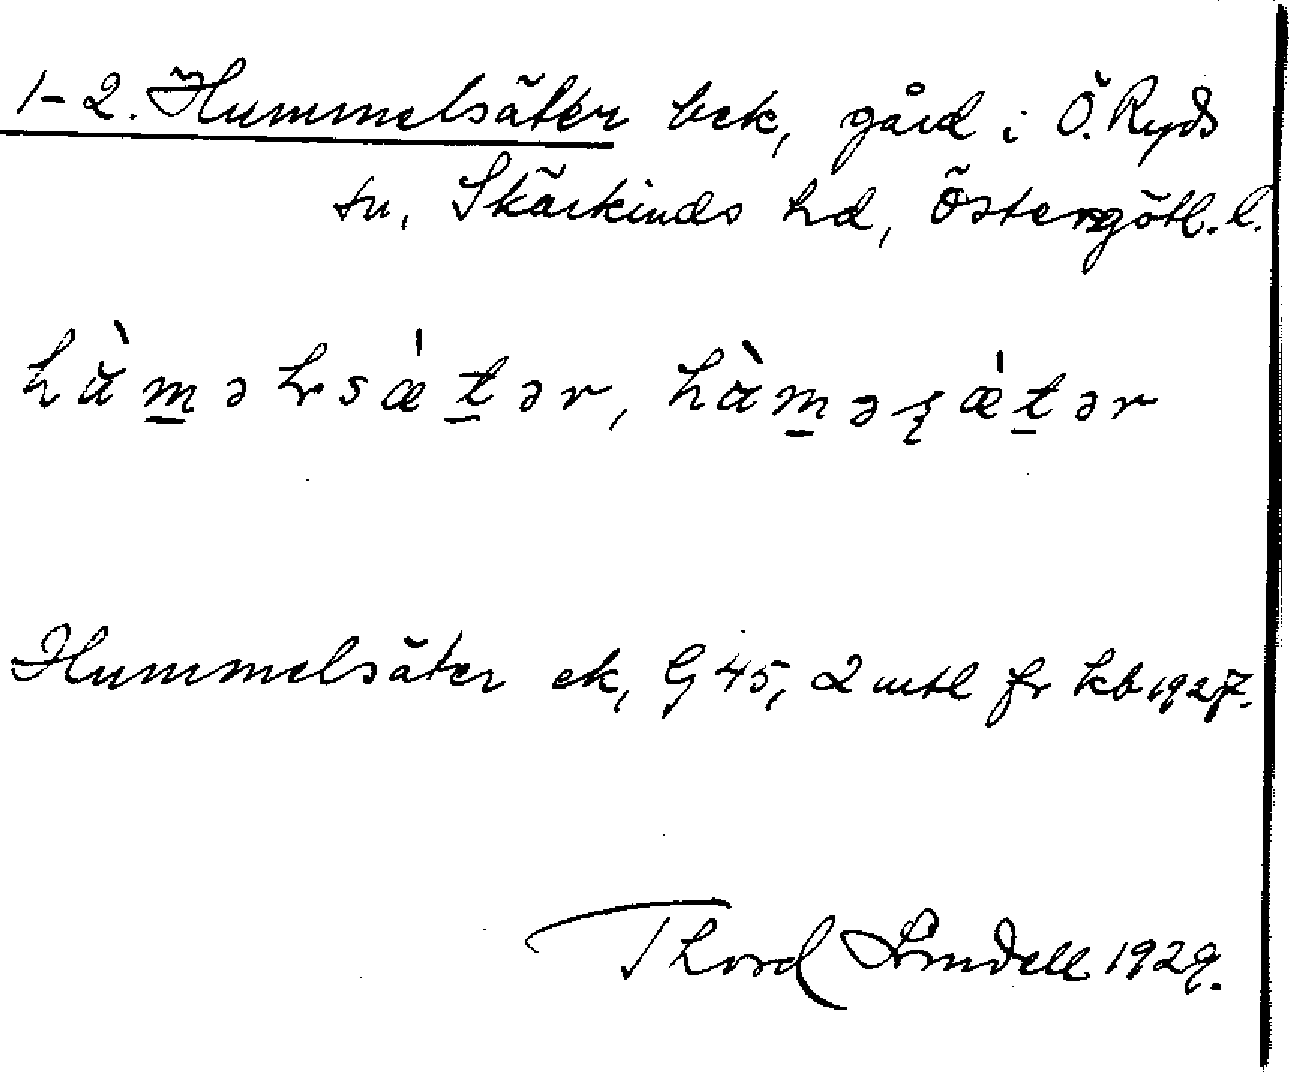 1-2. Hummelsäter bek, gård i Ö. Ryds
sn, Skärkinds hd, Östergötl. l.
hàm̱əɫsǽṯər, hàm̱əʂǽṯər
Hummelsäter ek, G 45, 2 mtl fr kb 1927.
Thord Lindell 1929.